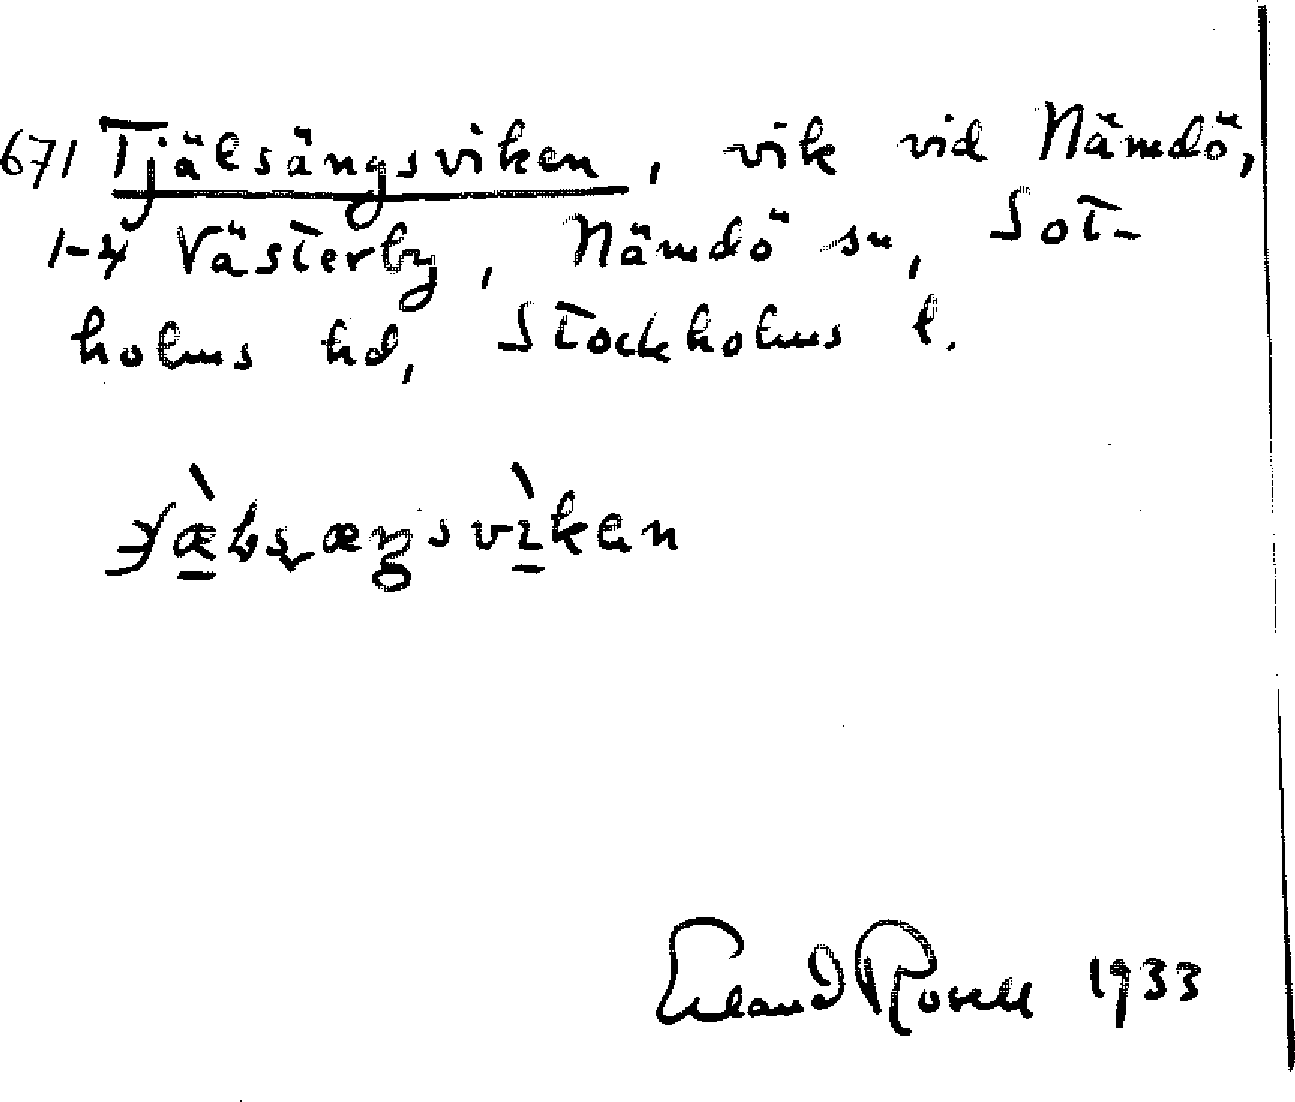 671 Tjälsängsviken, vik vid Nämdö,
1-4 Västerby, Nämdö sn, Sot-
holms hd, Stockholms l.
Erland Rosell 1933